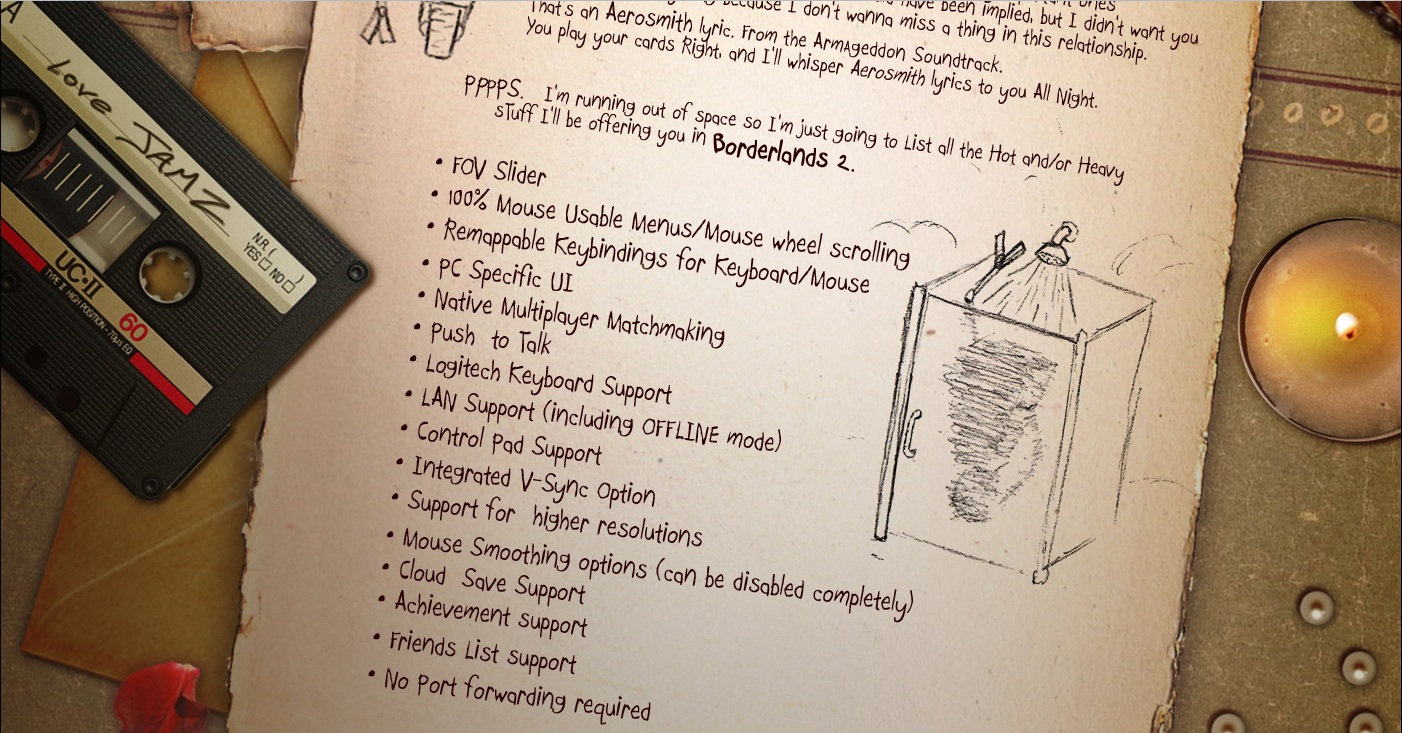 because I don't wanna miss a thing in this relationship.
have been implied, but I didn't want you
That's an Aerosmith lyric. From the Armageddon Soundtrack.
You play your cards Right, and I'll whisper Aerosmith lyrics to you All Night.
PPPPS. I'm running out of space so I'm just going to List all the Hot and/or Heavy
sTuff I'll be offering you in Borderlands 2.
• FOV Slider
• 100% Mouse Usable Menus/Mouse wheel scrolling
• Remappable Keybindings for Keyboard/Mouse
• PC Specific UI
• Native Multiplayer Matchmaking
• Push to Talk
• Logitech Keyboard Support
• LAN Support (including OFFLINE mode)
• Control Pad Support
• Integrated V-Sync Option
• Support for higher resolutions
• Mouse Smoothing options (can be disabled completely)
• Cloud Save Support
• Achievement support
• Friends List support
• No Port forwarding required
A
Love JAMZ
N.R.
YES NO
UC·II
60
TYPE II HIGH POSITION · 70μs EQ